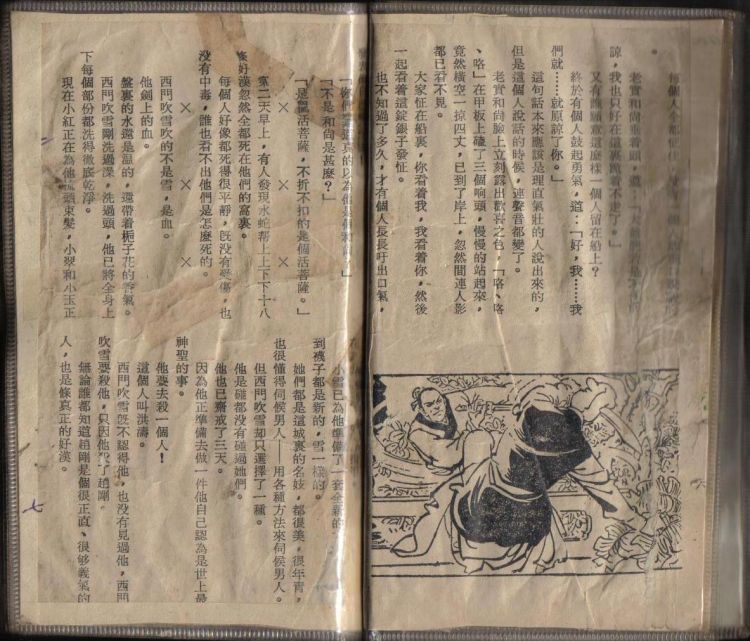 每個人
老實和尚垂着頭，道：
諒，我也只好在這裏跪着不走了。」
又有誰願意這麼樣一個人留在船上？
終於有個人鼓起勇氣，道：「好，我……我
們就……就原諒了你。」
這句話本來應該是理直氣壯的人說出來的，
但是這個人說話的時候，連聲音都變了。
老實和尚臉上立刻露出歡喜之色，「咯、咯
、咯」在甲板上磕了三個響頭，慢慢的站起來，
竟然橫空一掠四丈，已到了岸上，忽然間連人影
都已看不見。
大家怔在船裏，你看着我，我看着你，然後
一起看着這錠銀子發怔。
也不知過了多久，才有個人長長吁出口氣，
「你們還真的以為他是個和尚？」
「不是和尚是甚麼？」
「是個活菩薩，不折不扣的是個活菩薩。」
×　×　×
第二天早上，有人發現水蛇幫上上下下十八
條好漢忽然全都死在他們的窩裏。
每個人好像都死得很平靜，既没有受傷，也
没有中毒，誰也看不出他們是怎麼死的。
×　×　×
西門吹雪吹的不是雪，是血。
他劍上的血。
盤裏的水還是溫的，還帶着梔子花的香氣。
西門吹雪剛洗過澡，洗過頭，他已將全身上
下每個部份都洗得徹底乾淨。
現在小紅正在為他梳頭束髮，小翠和小玉正
小雪已為他準備了一套全新的
到襪子都是新的，雪一樣的。
她們都是這城裏的名妓，都很美，很年青，
也很懂得伺候男人——用各種方法來伺候男人。
但西門吹雪却只選擇了一種。
他是碰都没有碰過她們。
他也已齋戒了三天。
因為他正準備去做一件他自己認為是世上最
神聖的事。
他要去殺一個人！
這個人叫洪濤。
西門吹雪既不認得他，也没有見過他，西門
吹雪要殺他，只因他殺了趙剛。
無論誰都知道趙剛是個很正直、很够義氣的
人，也是條真正的好漢。
七